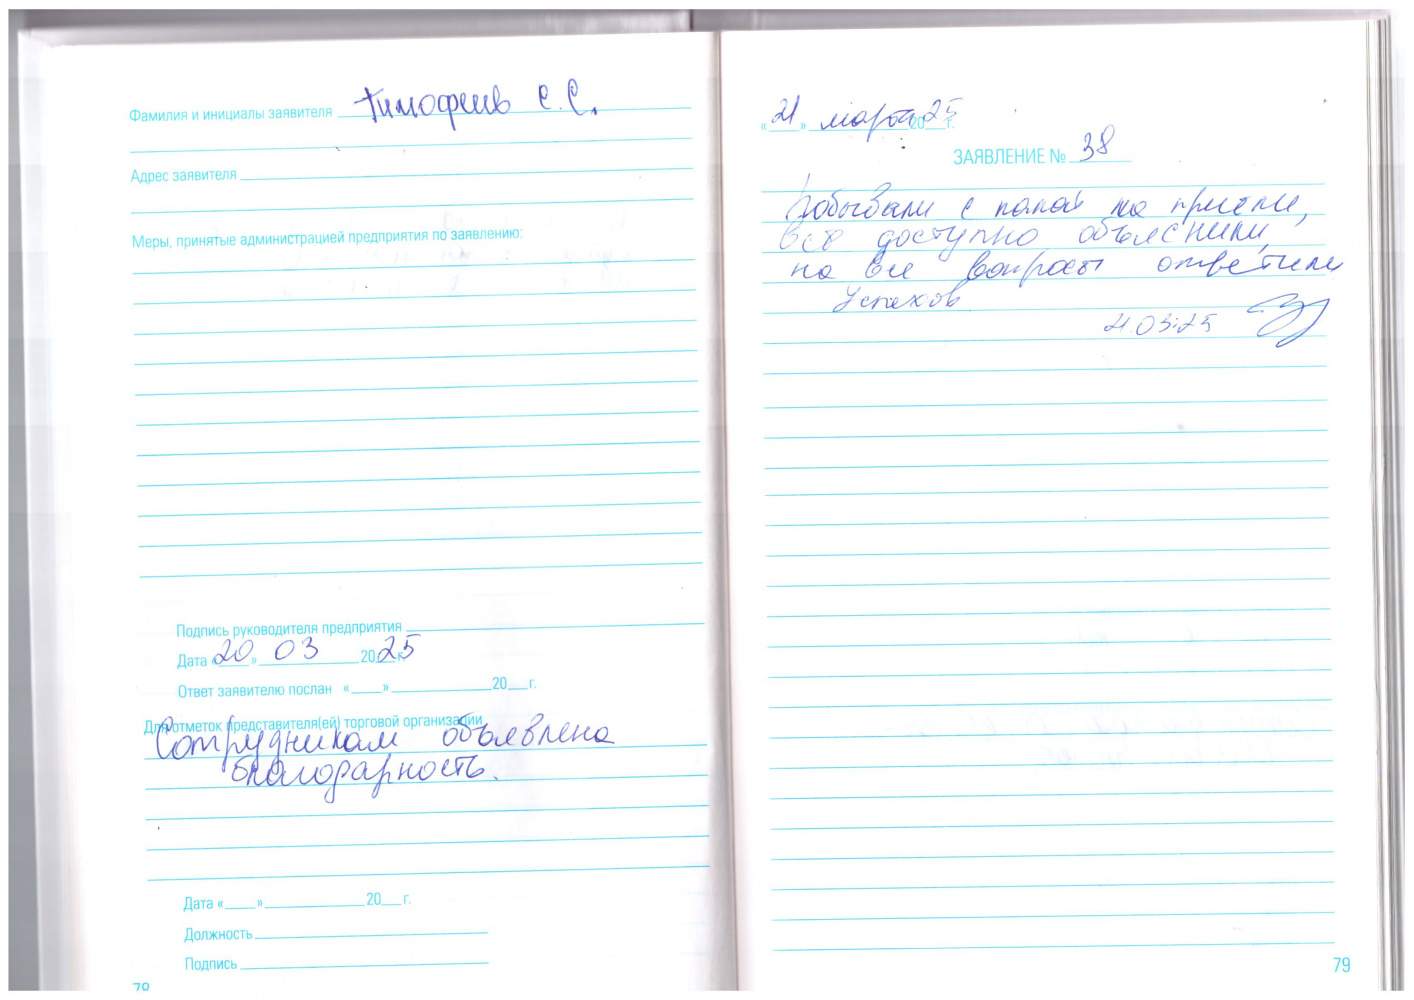 Фамилия и инициалы заявителя Тимофеев С.С.
Адрес заявителя
Меры, принятые администрацией предприятия по заявлению:
Подпись руководителя предприятия
Дата «20» 03 2025 г.
Ответ заявителю послан «___» ___ 20__г.
Для отметок представителя(ей) торговой организации
Сотрудникам объявлена
благодарность.
Дата «___» ___ 20__г.
Должность
Подпись
78
«21» марта 2025 г.
ЗАЯВЛЕНИЕ № 38
Побывали с папой на приеме,
всё доступно объяснили,
на все вопросы ответили
Успехов
21.03.25
79